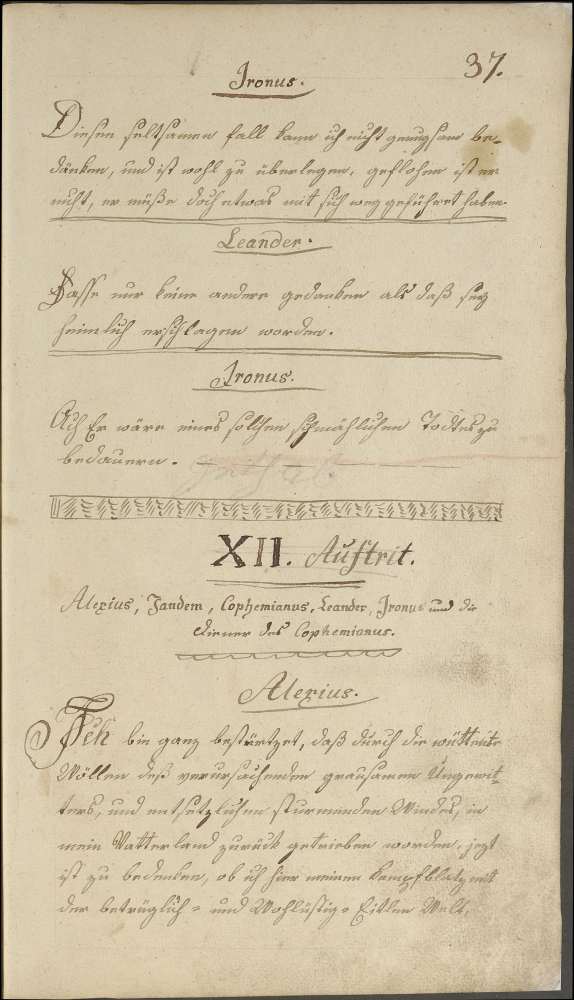 37.
Ironus.
Diesen seltsamen fall kann ich nicht genugsam be-
dänken, und ist wohl zu überlegen, geflohen ist er
nicht, er müße doch etwas mit sich weg geführet haben.
Leander.
Fasse nur keine andere gedanken als daß sey
heimlich erschlagen worden.
Ironus.
Ach Er wäre eines solchen schmählichen Todtes zu
bedauern.
XII. Auftrit.
Alexius, Jandem, Cophemianus, Leander, Ironus und die
diener des Cophemianus.
Alexius.
Ich bin ganz bestürtzet, daß durch die wüttente
Wöllen deß verursachenden grausamen Ungewit-
ters, und entsetzlichen sturmenden Windes, in
mein Vatterland zurück getrieben worden, jezt
ist zu bedenken, ob ich hier meinen kampfblatz mit
der betrüglich- und Wohlüstig- Eitlen Welt,